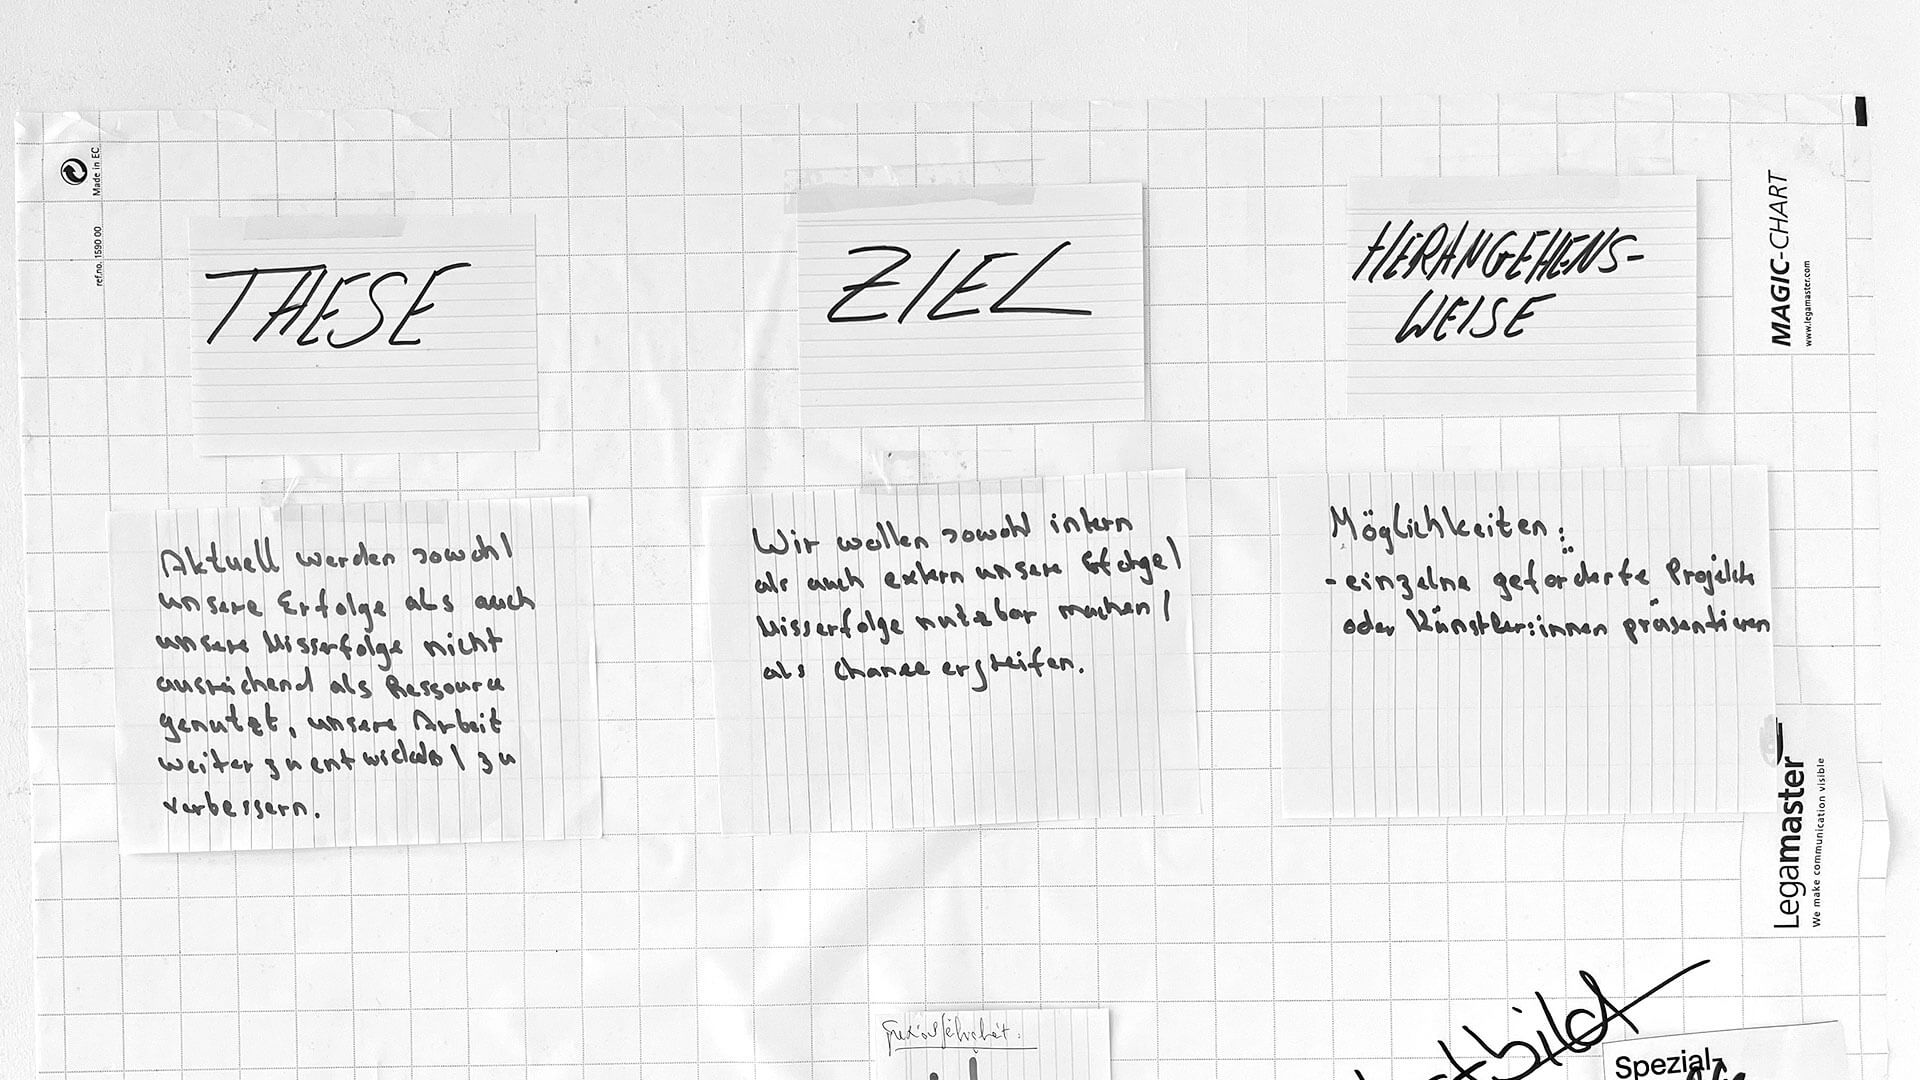 Made in EC
ref.no. 1590 00
MAGIC-CHART
www.legamaster.com
THESE
ZIEL
HERANGEHENS-
WEISE
Aktuell werden sowohl
unsere Erfolge als auch
unsere Misserfolge nicht
ausreichend als Ressource
genutzt, unsere Arbeit
weiter zu entwickeln / zu
verbessern.
Wir wollen sowohl intern
als auch extern unsere Erfolge /
Misserfolge nutzbar machen /
als Chance ergreifen.
Möglichkeiten:
- einzelne geförderte Projekte
oder Künstler:innen präsentieren
Legamaster
We make communication visible
Spezial-